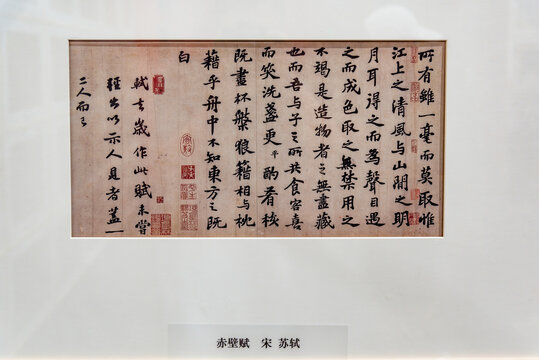 所有雖一毫而莫取惟
江上之清風與山間之明
月耳得之而為聲目遇
之而成色取之無禁用之
不竭是造物者之無盡藏
也而吾與子之所共食客喜
而笑洗盞更酌肴核
平
既盡杯槃狼籍相與枕
藉乎舟中不知東方之既
白
軾去歲作此賦未嘗
輕出以示人見者蓋一
二人而已
赤壁赋 宋 苏轼